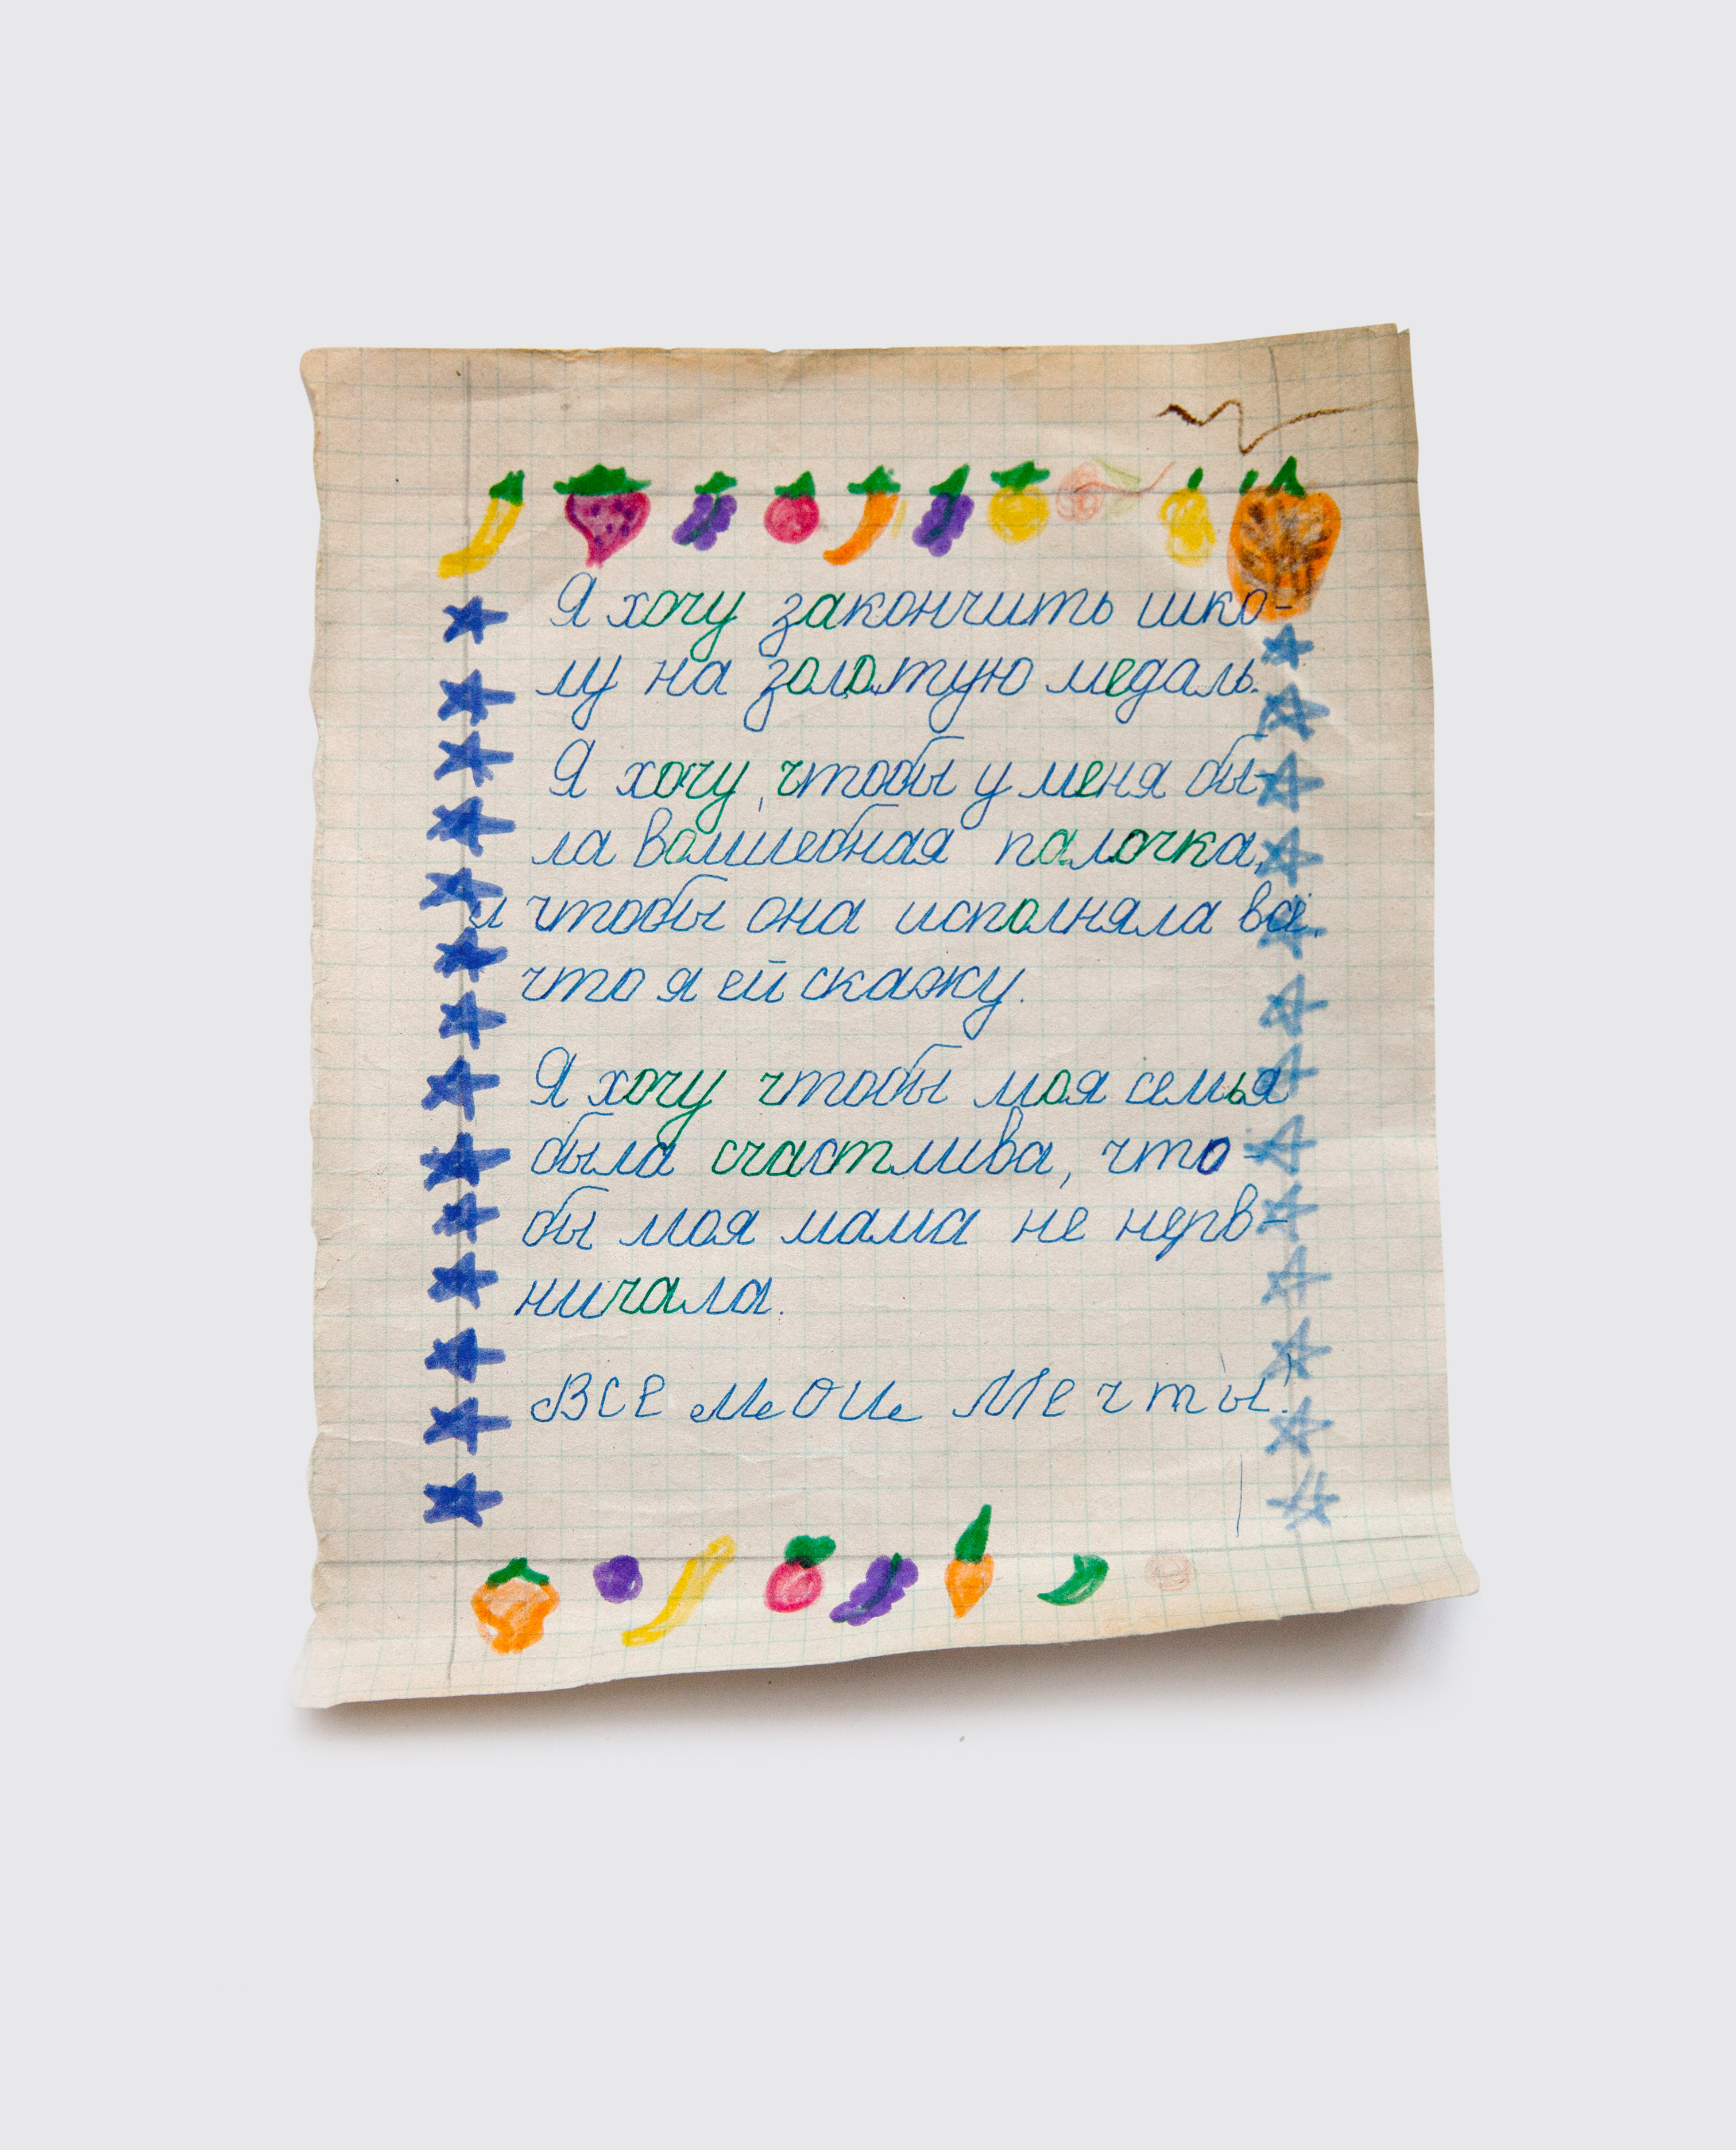 Я хочу закончить шко-
лу на золотую медаль.
Я хочу, чтобы у меня бы-
ла волшебная палочка,
и чтобы она исполняла всё,
что я ей скажу.
Я хочу чтобы моя семья
была счастлива, что-
бы моя мама не нерв-
ничала.
ВСЕ МОИ МЕЧТЫ!